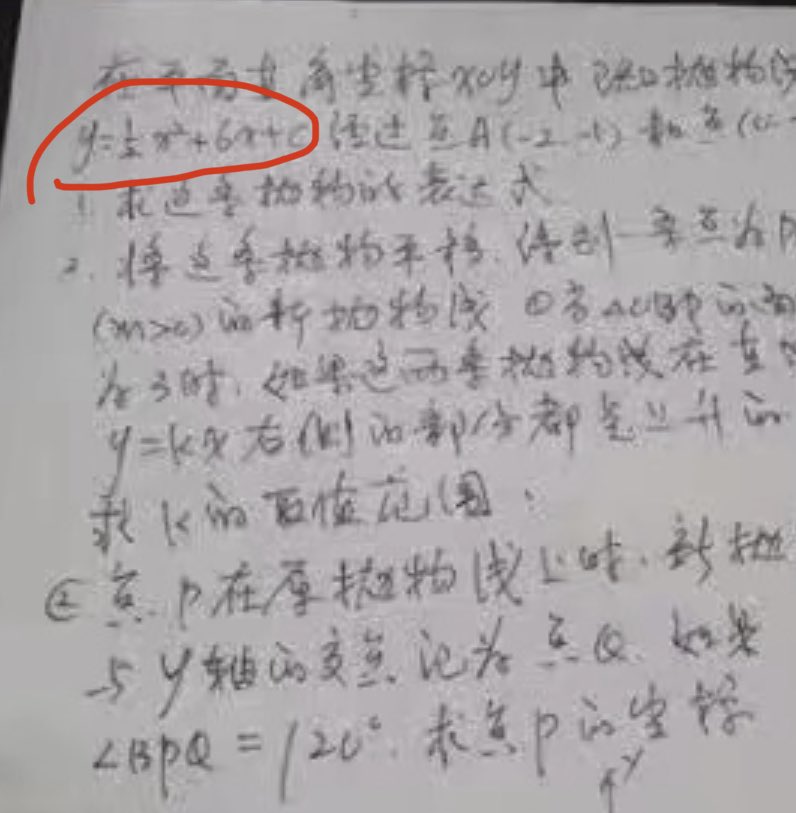 在平面直角坐标xOy中 已知抛物线
y=½x²+bx+c 经过点A(-2 -1) 和点(0-
1. 求这条抛物的表达式
2. 将这条抛物平移. 得到一条点为P
(m>0)的新抛物线 ①当△OBP的面
为3时. 如果这两条抛物线在直
y=kx右侧的部分都是上升的
求k的取值范围.
② 点P在原抛物线上时. 新抛
与y轴的交点记为点Q. 如果
∠BPQ=120°. 求点P的坐标
y